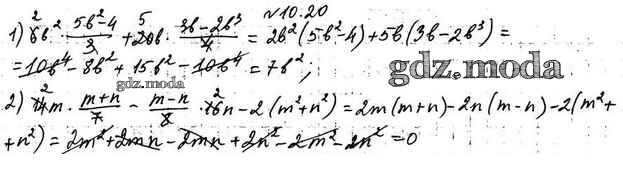 №10.20
1) 6b² · (5b²-4)/3 + 20b · (3b-2b³)/4 = 2b²(5b²-4)+5b(3b-2b³) =
= 10b⁴-8b²+15b²-10b⁴ = 7b²;
gdz.moda
gdz.moda
2) 14m · (m+n)/7 - (m-n)/8 · 16n-2(m²+n²) = 2m(m+n)-2n(m-n)-2(m²+
+n²) = 2m²+2mn-2mn+2n²-2m²-2n² = 0